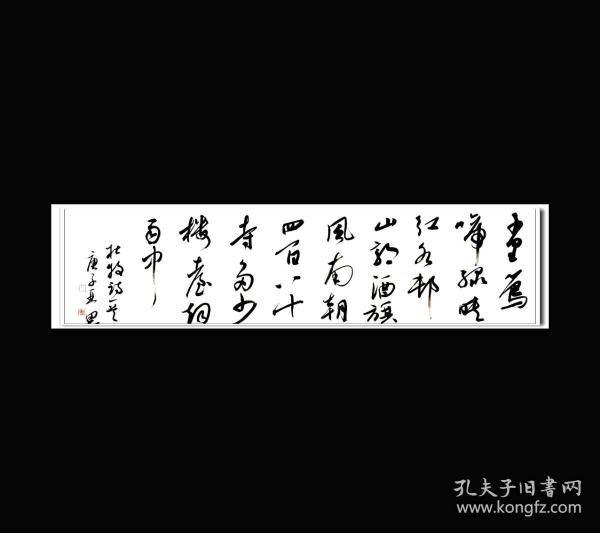 千里莺
啼绿映
红水村
山郭酒旗
風南朝
四百八十
寺多少
楼臺烟
雨中
杜牧诗一首
庚子夏
孔夫子旧書网
www.kongfz.com